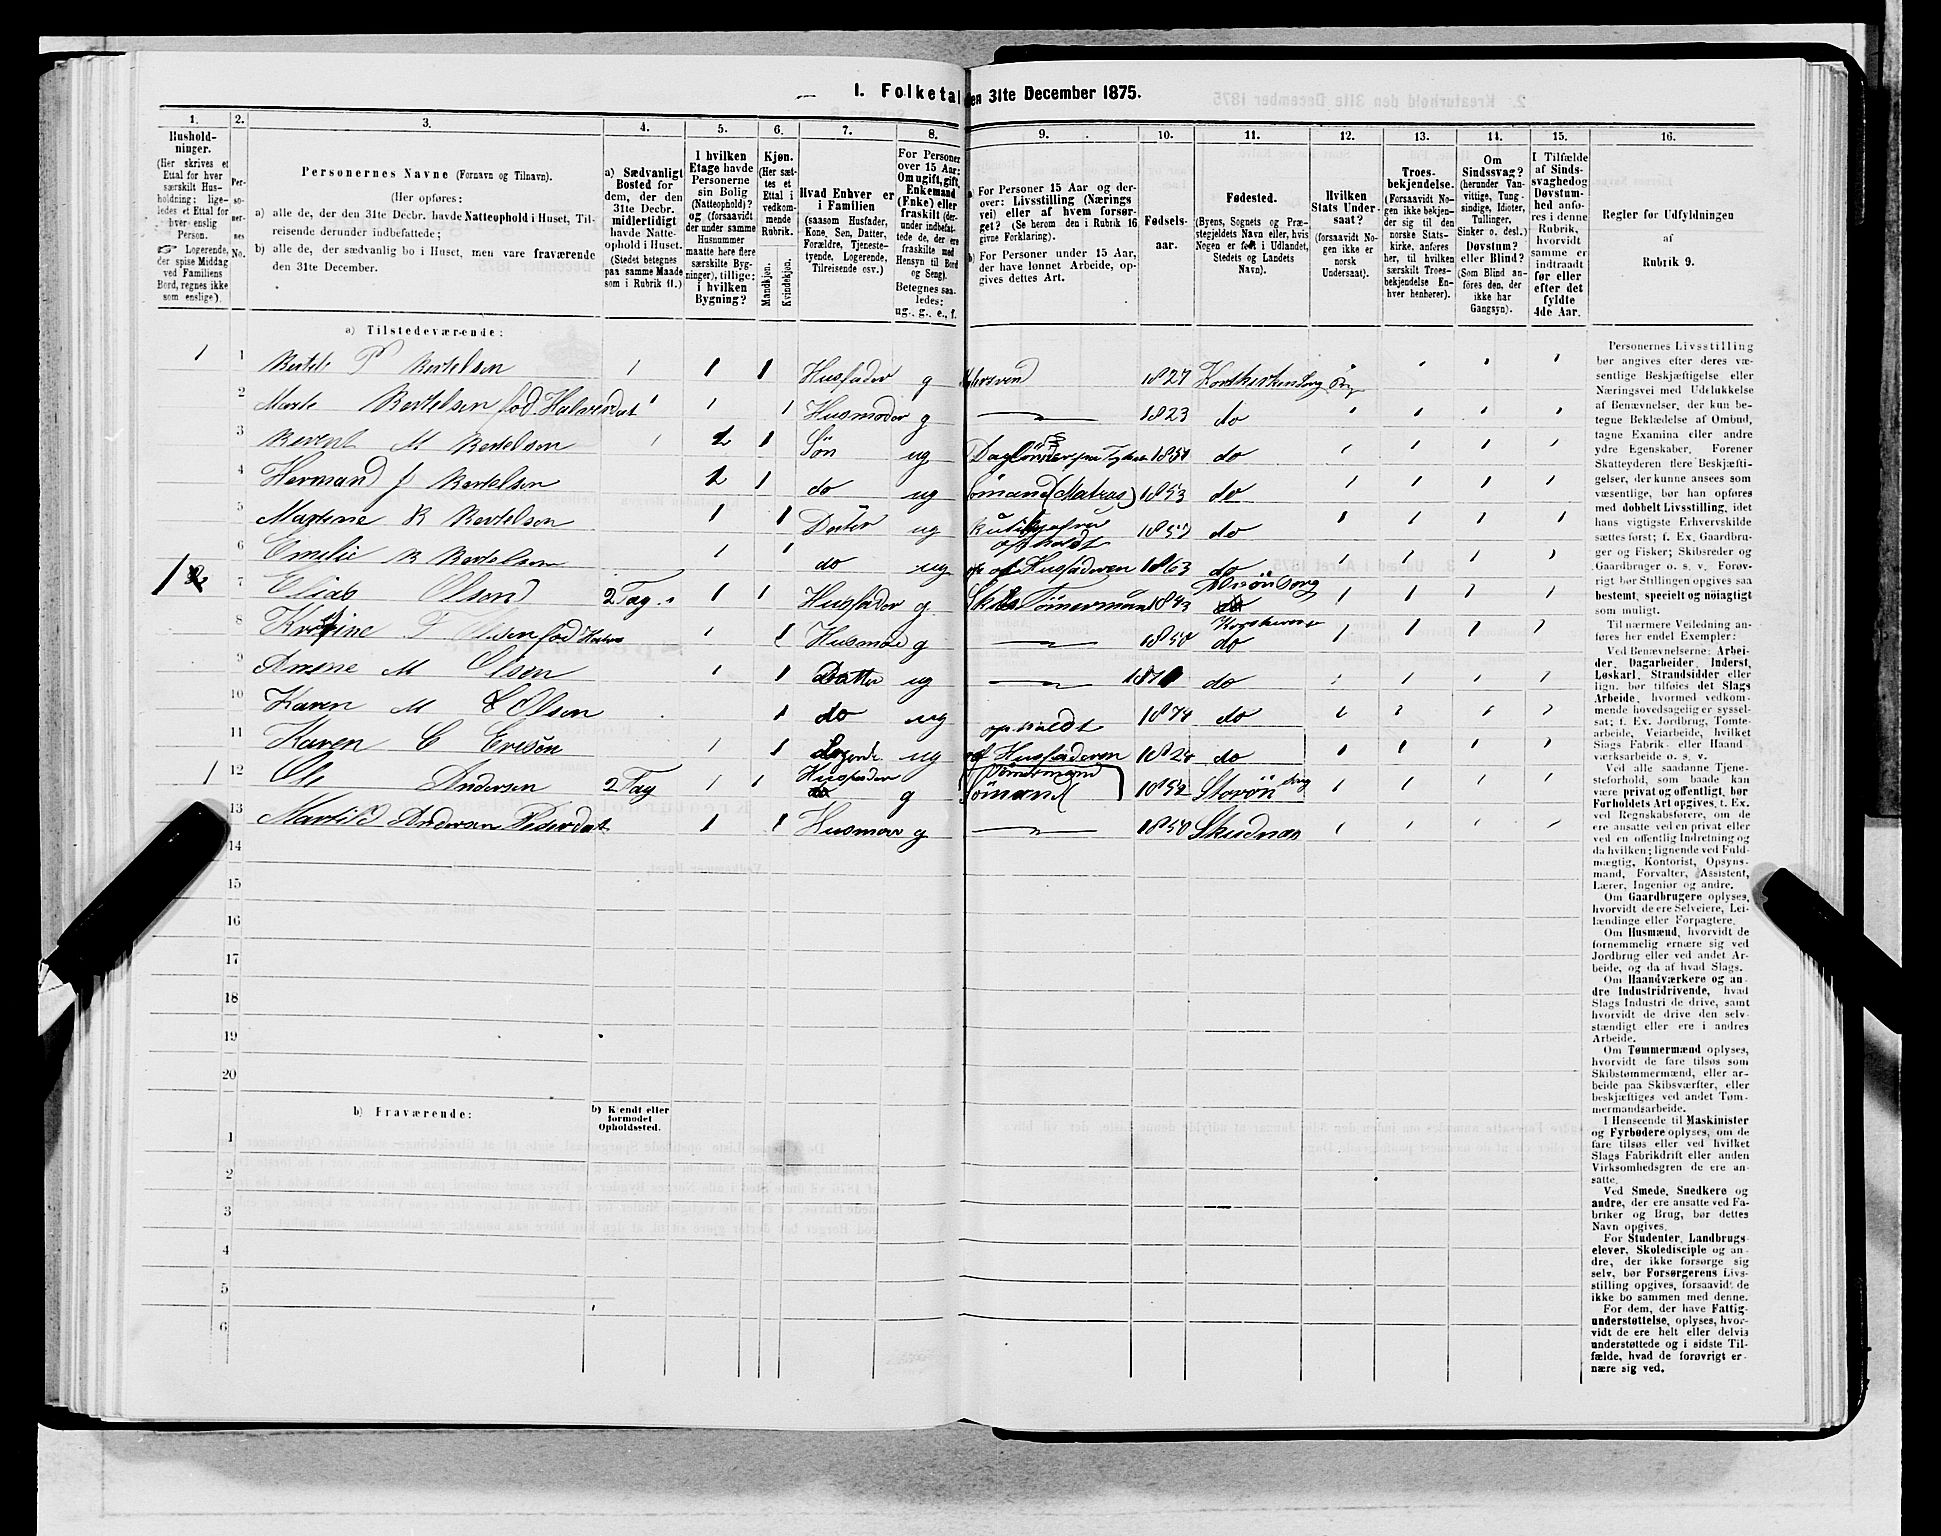 1. Folketal den 31te December 1875.
1. 2. 3. 4. 5. 6. 7. 8. 9. 10. 11. 12. 13. 14. 15. 16.
Husholdninger.
(Her skrives et
Ettal for hver
særskilt Husholdning; ligeledes et Ettal for
hver enslig
Person.
☞ Logerende,
der spise Middag
ved Familiens
Bord, regnes ikke
som enslige).
Personernes No.
Personernes Navne (Fornavn og Tilnavn).
(Her opføres:
a) alle de, der den 31te Decbr. havde Natteophold i Huset, Tilreisende derunder indbefattede;
b) alle de, der sædvanlig bo i Huset, men vare fraværende
den 31te December.
a) Sædvanligt
Bosted for
dem, der den
31te Decbr.
midlertidigt
havde Natteophold i Huset.
(Stedet betegnes
paa samme Maade
som i Rubrik 11.)
I hvilken
Etage havde
Personerne
sin Bolig
(Natteophold)?
og (forsaavidt
der under samme
Husnummer
maatte høre flere
særskilte Bygninger), tillige:
i hvilken
Bygning?
Kjøn.
(Her sættes et
Ettal i
vedkommende
Rubrik.
Mandkjøn.
Kvindekjøn.
Hvad Enhver er
i Familien
(saasom Husfader,
Kone, Søn, Datter,
Forældre, Tjenestetyende, Logerende,
Tilreisende osv.)
For Personer
over 15 Aar:
Om ugift, gift,
Enkemand
(Enke) eller
fraskilt (derunder indbefattede de, der ere
fraskilte med
Hensyn til Bord
og Seng).
Betegnes saaledes:
ug., g., e., f.
a) For Personer 15 Aar og derover: Livsstilling (Næringsvei) eller af hvem forsørget? (Se herom den i Rubrik 16
givne Forklaring).
b) For Personer under 15 Aar,
der have lønnet Arbeide, opgives dettes Art.
Fødselsaar.
Fødested.
(Byens, Sognets og Præstegjeldets Navn eller, hvis
Nogen er født i Udlandet,
Stedets og Landets
Navn).
Hvilken
Stats Undersaat?
(forsaavidt Nogen ikke er
norsk
Undersaat).
Troesbekjendelse.
(Forsaavidt Nogen ikke bekjender sig til den
norske Statskirke, anføres
her, til hvilken
særskilt Troesbekjendelse Enhver henhører).
Om
Sindssvag?
(herunder Vanvittige, Tungsindige, Idioter,
Tullinger,
Sinker o. desl.)
Døvstum?
eller Blind?
(Som Blind anføres den, der
ikke har
Gangsyn).
I Tilfælde
af Sindssvaghed og
Døvstumhed anføres i denne
Rubrik,
hvorvidt
samme er
indtraadt
før eller
efter det
fyldte
4de Aar.
Regler før Udfyldningen
af
Rubrik 9.
a) Tilstedeværende:
1 1 Bertel P Bertelsen 1 1 Husfader g 1827
2 Marte Bertelsen fød Halvorsdat 1 1 Husmoder g 1823 do
3 Berent M Bertelsen 2 1 Søn ug do
4 Herman J Bertelsen 2 1 do ug Sömand (Matros) 1853 do
5 B Bertelsen 1 1 Datter ug do
6 Emilie B Bertelsen 1 1 do ug op af Husfaderen 1863 do
1 7 Elias Olsen 2 Tag 1 1 Husfader g Skibs Tömmermand 1843
8 Olsen fød 1 1 Husmoe g 1850 do
9 M Olsen 1 1 Datter ug 1871 do
10 Karen M Olsen 1 do ug opholdt 1874 do
11 Karen C 1 1 Logerende ug af Husfaderen do
1 12 Ole Andersen 2 Tag 1 1 Husfader g Sömand (Tömermand) 1852
13 Andersen Pedersdat 1 1 Husmoer g 1850 Skudnæs
14
15
16
17
18
19
20
b) Fraværende:
b) Kjendt eller
formodet
Opholdssted.
1
2
3
4
5
6
Personernes Livsstilling
bør angives efter deres væsentlige Beskjæftigelse eller
Næringsvei med Udelukkelse
af Benævnelser, der kun betegne Beklædelse af Ombud,
tagne Examina eller andre
ydre Egenskaber. Forener
Skatteyderen flere Beskjæftigelser, der kunne ansees som
væsentlige, bør han opføres
med dobbelt Livsstilling, idet
hans vigtigste Erhvervskilde
sættes først; f. Ex. Gaardbruger og Fisker; Skibsreder og
Gaardbruger o. s. v. Forøvrigt bør Stillingen opgives saa
bestemt, specielt og nøiagtigt
som muligt.
Til nærmere Veiledning anføres her endel Exempler:
Ved Benævnelserne: Arbeider, Dagarbeider, Inderst,
Løskarl, Strandsidder eller
lign. bør tilføies det Slags
Arbeide, hvormed vedkommende hovedsagelig er sysselsat; f. Ex. Jordbrug, Tomtearbeide, Veiarbeide, hvilket
Slags Fabrik- eller Haandværksarbeide o. s. v.
Ved alle saadanne Tjenesteforhold, som baade kan
være privat og offentligt, bør
Forholdets Art opgives, t. Ex.
ved Regnskabsførere, om de
ere ansatte ved en privat eller
ved en offentlig Indretning og
da hvilken; lignende ved Fuldmægtig, Kontorist, Opsynsmand, Forvalter, Assistent,
Lærer, Ingeniør og andre.
Om Gaardbrugere oplyses,
hvorvidt de ere Selveiere, Leilændinge eller Forpagtere.
Om Husmænd, hvorvidt de
fornemmelig ernære sig ved
Jordbrug eller ved andet Arbeide, og da af hvad Slags.
Om Haandværkere og andre Industridrivende, hvad
Slags Industri de drive, samt
hvorvidt de drive den selvstændigt eller ere i andres
Arbeide.
Om Tømmermænd oplyses,
hvorvidt de fare tilsøs som
Skibstømmermænd, eller arbeide paa Skibsværfter, eller
beskjæftiges ved andet Tømmermandsarbeide.
I Henseende til Maskinister
og Fyrbødere oplyses, om de
fare tilsøs eller ved hvilket
Slags Fabrikdrift eller anden
Virksomhedsgren de ere ansatte.
Ved Smede, Snedkere og
andre, der ere ansatte ved Fabriker og Brug, bør dettes
Navn opgives.
For Studenter, Landbrugselever, Skoledisciple og andre, der ikke forsørge sig
selv, bør Forsørgerens Livsstilling opgives, forsaavidt de
ikke bo sammen med denne.
For dem, der have Fattigunderstøttelse, oplyses, hvorvidt de ere helt eller delvis
understøttede og i sidste Tilfælde, hvad de forøvrigt ernære sig ved.